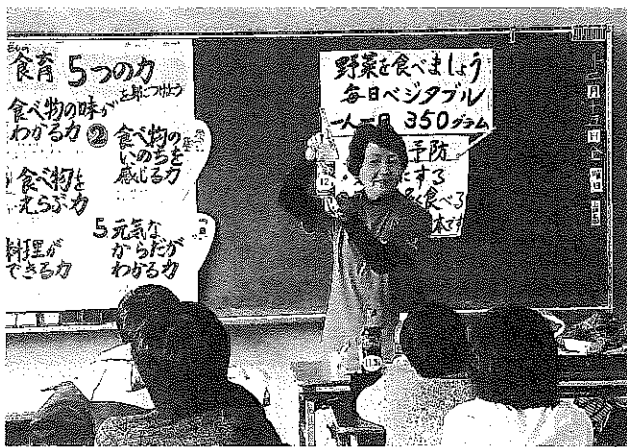 食育 5つの力
を身につけよう
食べ物の味が
わかる力
② 食べ物の
いのちを
感じる力
食べ物を
えらぶ力
料理が
できる力
5 元気な
からだが
わかる力
野菜を食べましょう
毎日ベジタブル
一人一日 350グラム
予防
にする
く食べる
本です
月
日
曜日